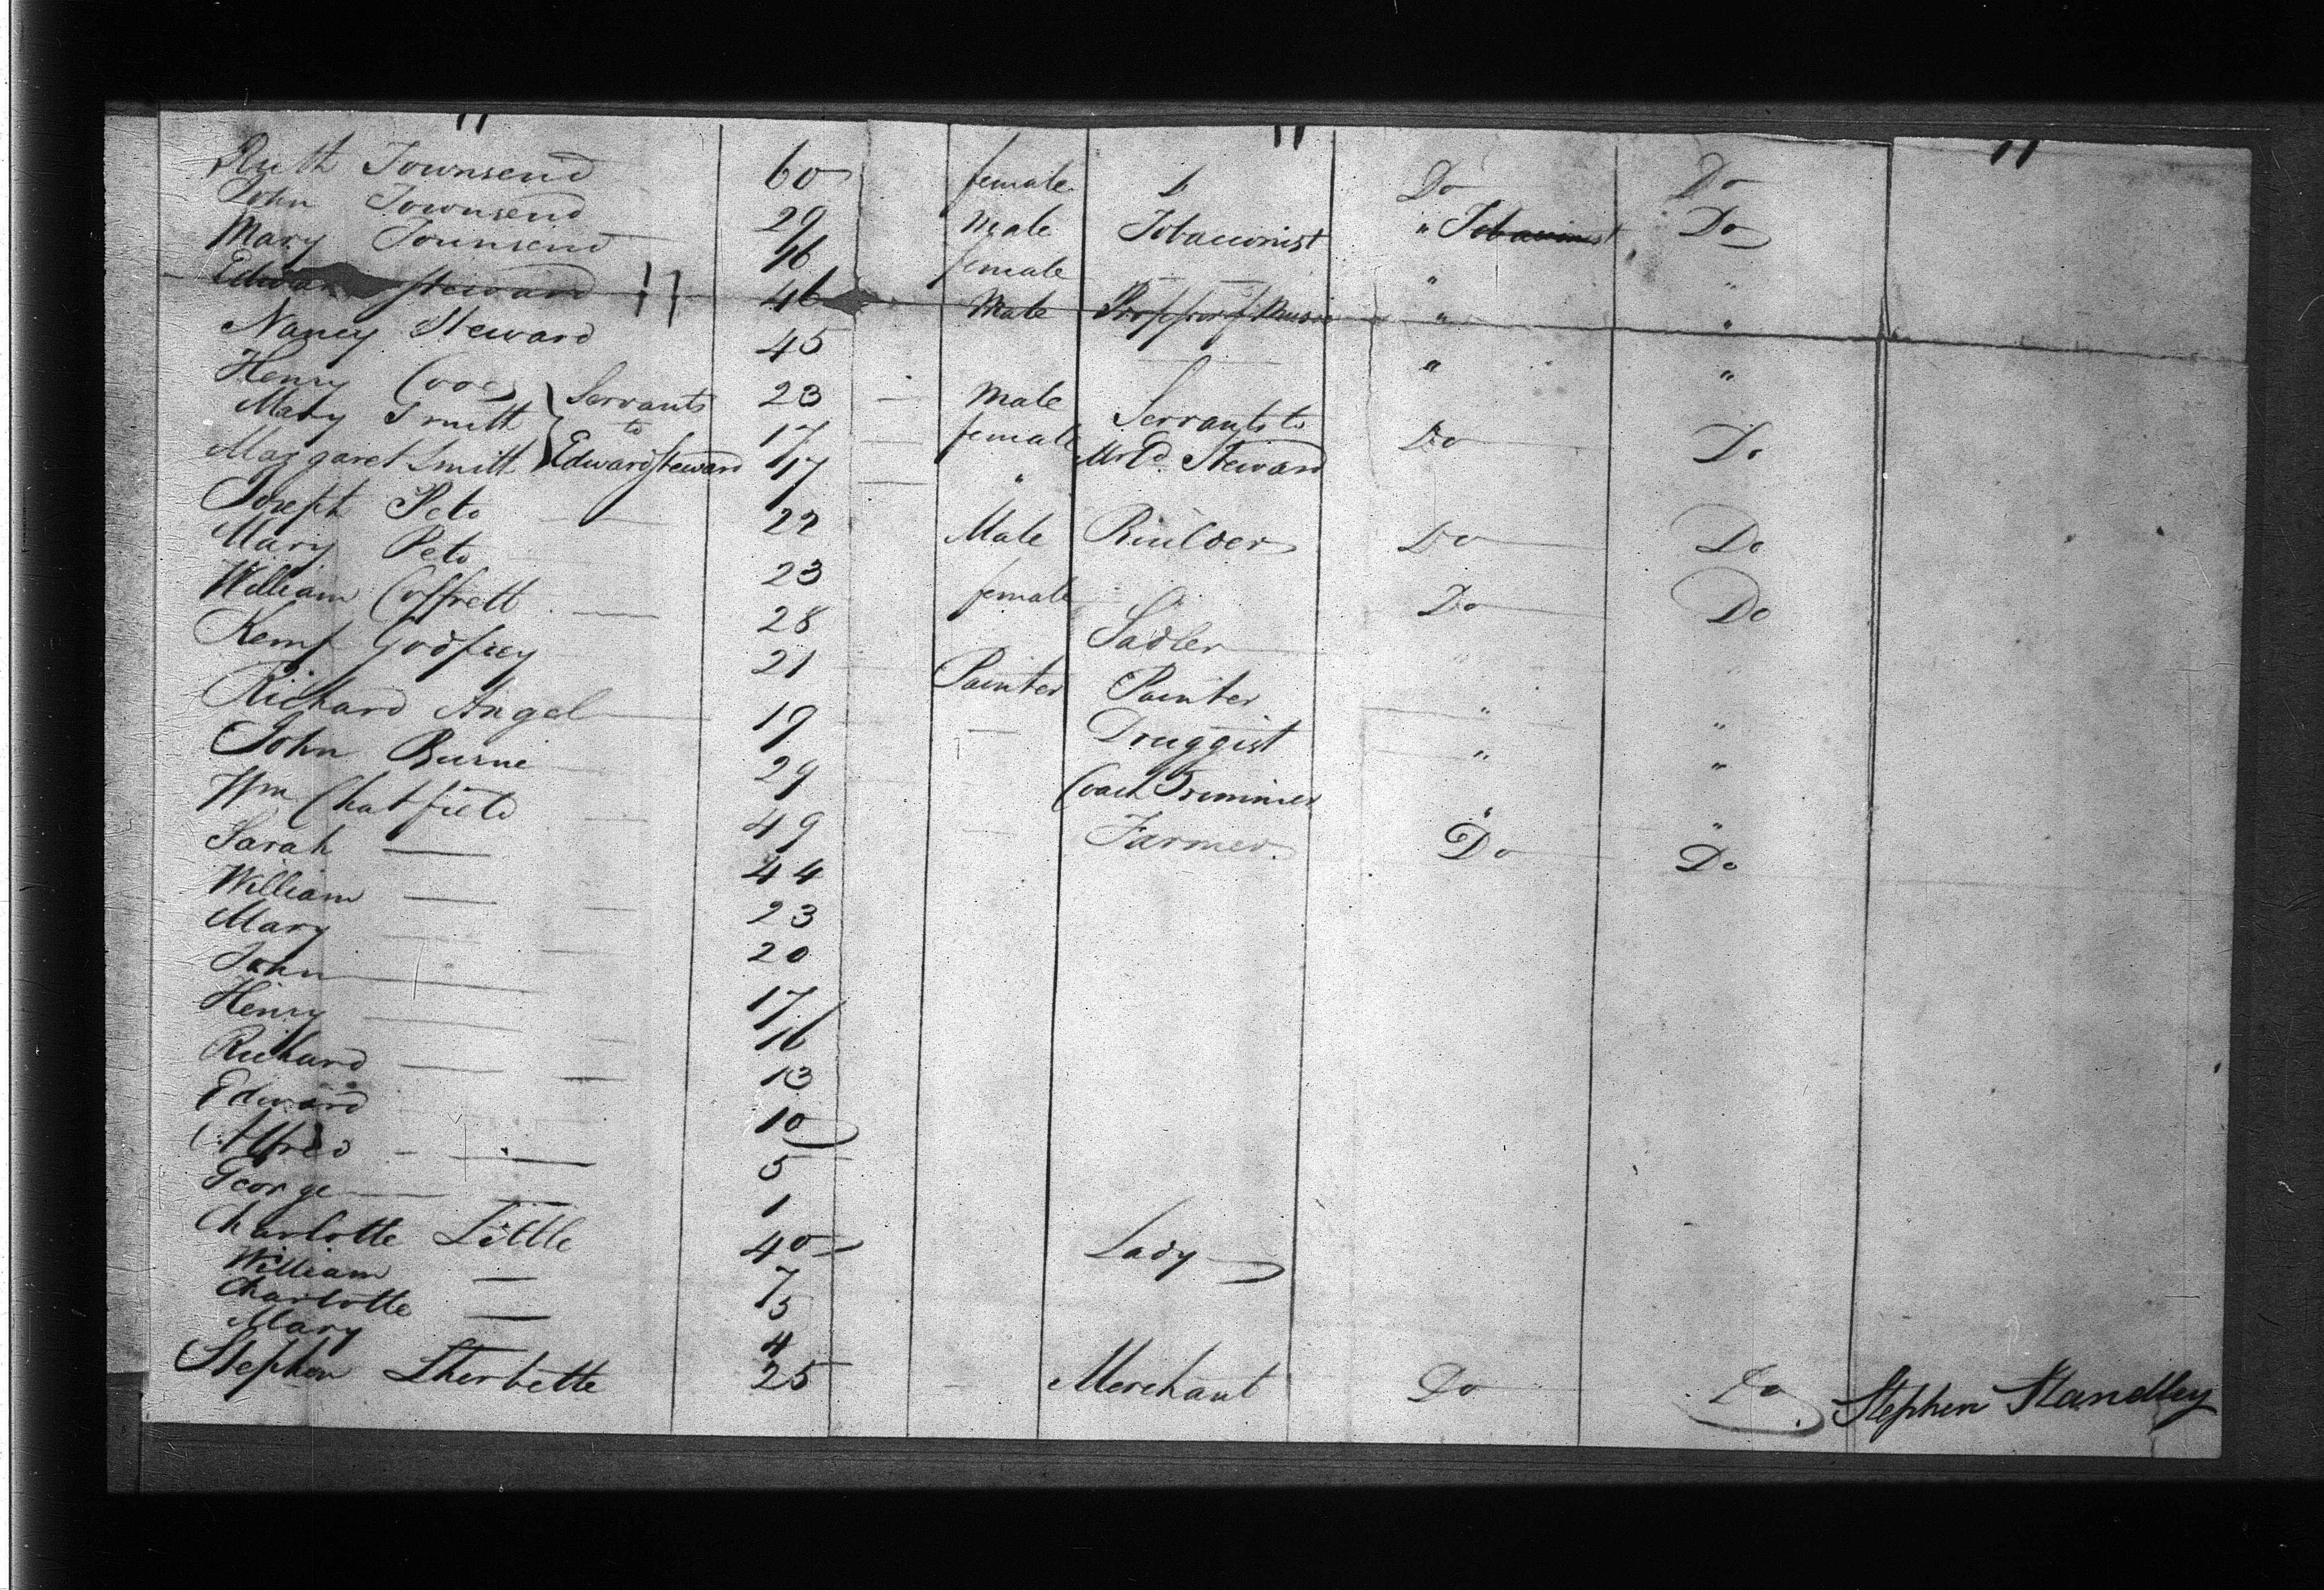 Ruth Townsend 60 female " Do Do
John Townsend 29 Male Tobacconist " Tobacconist Do
Mary Townsend 46 female " "
Edward Steward 46 Male Professor of Music " "
Nancy Steward 45 " "
Henry Cooe Servants 23 Male Servants to
Mary Smith to 17 female Do Do
Margaret Smith Edward Steward 17 " Mr Ed. Steward
Joseph Peto 22 Male Builder Do Do
Mary Peto 23 female Do Do
William Coffrett 28 Sadler
Kemp Godfrey 21 Painter Painter " "
Richard Angel 19 Druggist " "
John Burne 29 Coach Trimmer " "
Wm Chatfield 49 Farmer Do Do
Sarah — 44
William — 23
Mary — 20
John — 17
Henry — 16
Richard — 13
Edward 10
Alfred — 5
George — 1
Charlotte Little 40 Lady
William — 7
Charlotte — 5
Mary 4
Stephen Sherbette 25 Merchant Do Do Stephen Standley